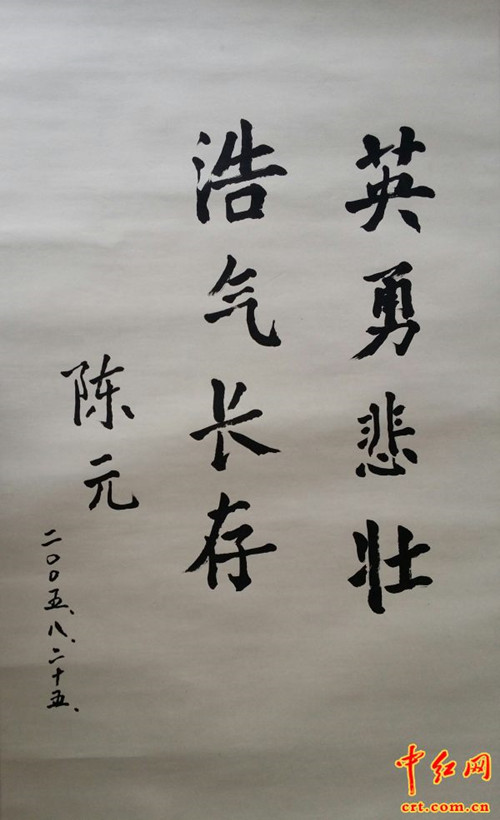 英勇悲壮
浩气长存
陈元
二〇〇五、八、二十五、
中红网
crt.com.cn